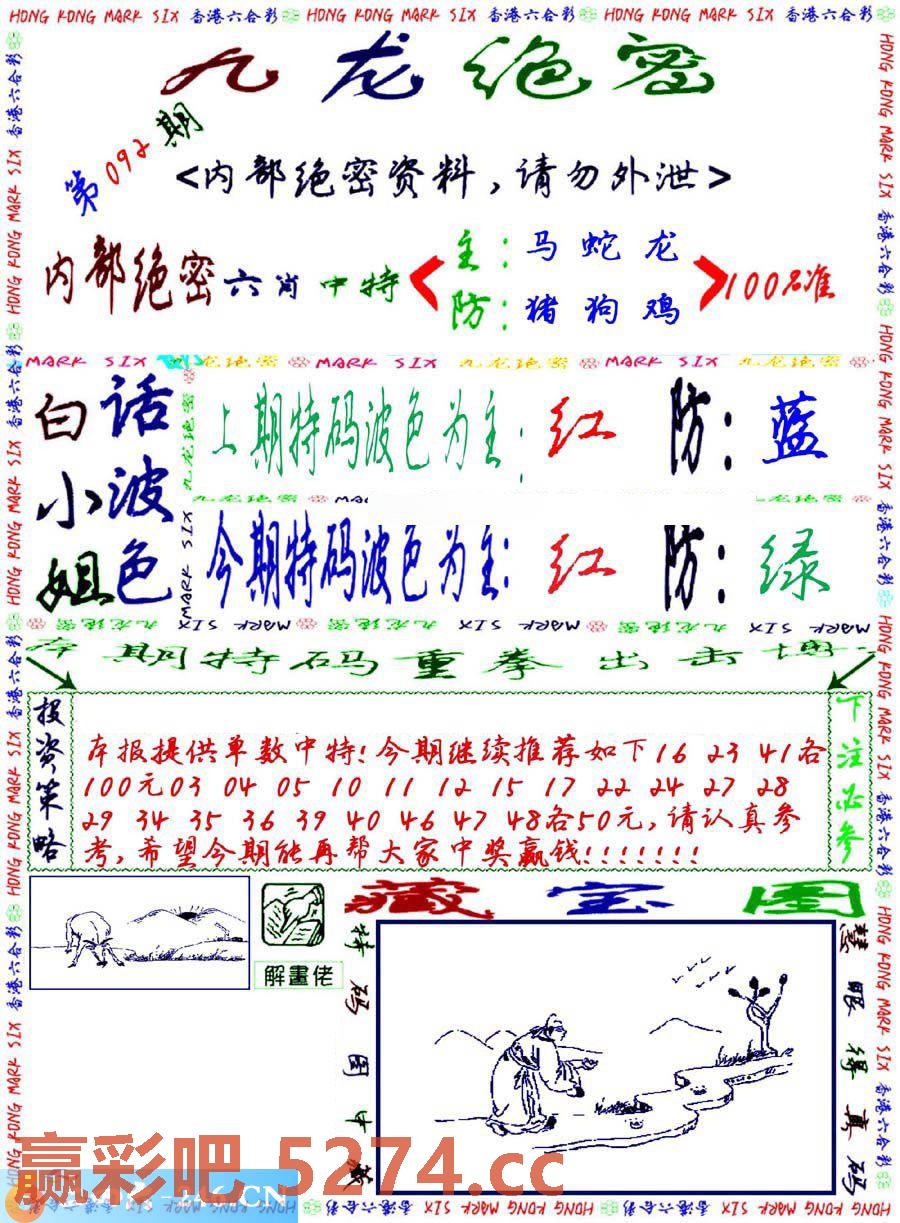 HONG KONG MARK SIX 香港六合彩 HONG KONG MARK SIX 香港六合彩 HONG KONG MARK SIX 香港六合彩
九龙绝密
第092期
<内部绝密资料,请勿外泄>
内部绝密六肖中特
主:马蛇龙
防:猪狗鸡
100%准
MARK SIX 九龙绝密 MARK SIX 九龙绝密 MARK SIX 九龙绝密
白小姐
话波色
上期特码波色为主:红 防:蓝
今期特码波色为主:红 防:绿
本期特码重拳出击博
投资策略
本报提供单数中特!今期继续推荐如下16 23 41各
100元03 04 05 10 11 12 15 17 22 24 27 28
29 34 35 36 39 40 46 47 48各50元,请认真参
考,希望今期能再帮大家中奖赢钱!!!!!!!
下注必参
解畫佬
藏宝图
特码图中藏
慧眼得真码
赢彩吧 5274.cc
246.CN